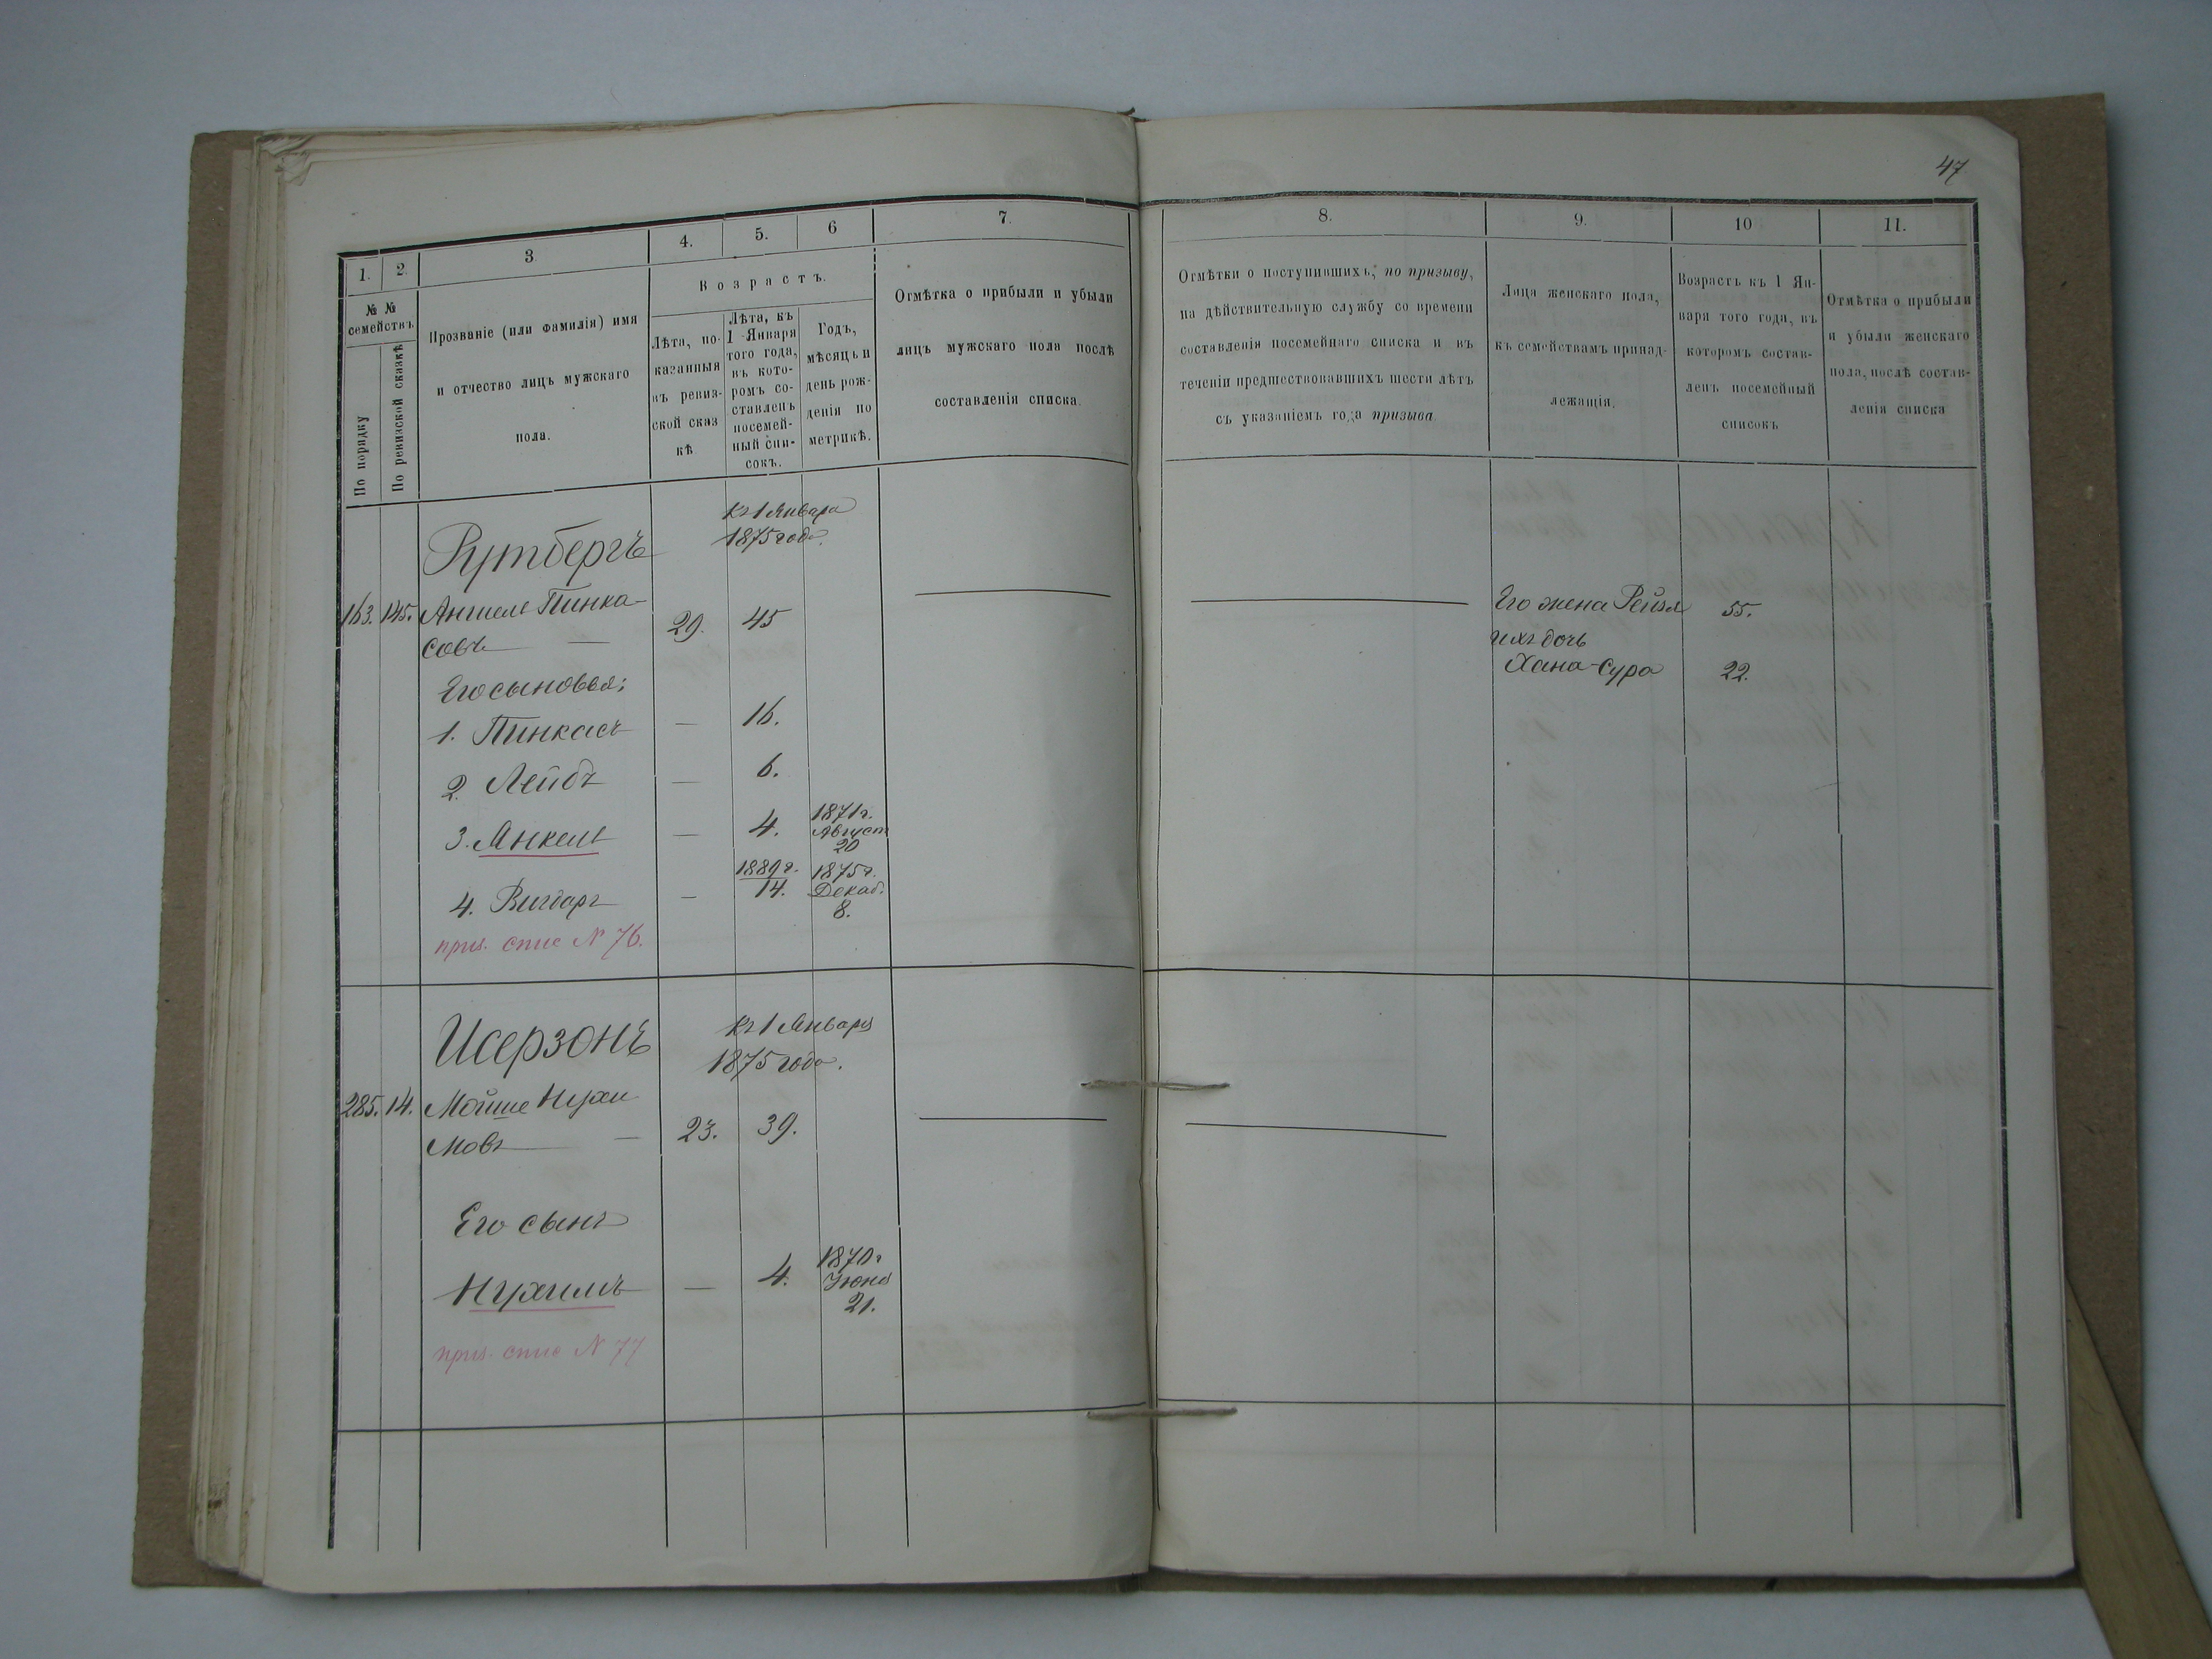 47
1.
2.
3
4.
5.
6
7.
8.
9.
10
11.
№ №
семействъ
По порядку
По ревизской сказкѣ
Прозваніе (или фамилія) имя
и отчество лицъ мужскаго
пола.
Возрастъ.
Лѣта, по-
казанныя
въ ревиз-
ской сказ
кѣ
Лѣта, къ
1 Января
того года,
въ кото-
ромъ со-
ставленъ
посемей-
ный спи-
сокъ.
Годъ,
мѣсяцъ и
день рож-
денія по
метрикѣ.
Отмѣтка о прибыли и убыли
лицъ мужскаго пола послѣ
составленія списка.
Отмѣтки о поступившихъ, по призыву,
на дѣйствительную службу со времени
составленія посемейнаго списка и въ
теченіи предшествовавшихъ шести лѣтъ
съ указаніемъ года призыва.
Лица женскаго пола,
къ семействамъ принад-
лежащія.
Возрастъ къ 1 Ян-
варя того года, въ
которомъ состав-
ленъ посемейный
списокъ
Отмѣтка о прибыли
и убыли женскаго
пола, послѣ состав-
ленія списка
Рутбергъ
къ 1 Января
1875 года.
163. 145. Аншель Пинка-
совъ — 29. 45
Его жена Рейзя 55.
ихъ дочь
Хана-Сура 22.
Его сыновья:
1. Пинкасъ — 16.
2. Лейбъ — 6.
3. Янкель — 4. 1871г.
Август
20
4. — 1889г.
14. 1875г.
Декаб.
8.
приз. спис N 76.
Исерзонъ
къ 1 Января
1875 года.
285. 14. Мойше Нухи
мовъ — 23. 39.
Его сынъ
Нухимъ — 4. 1870г
Июня
21.
приз. спис N 77